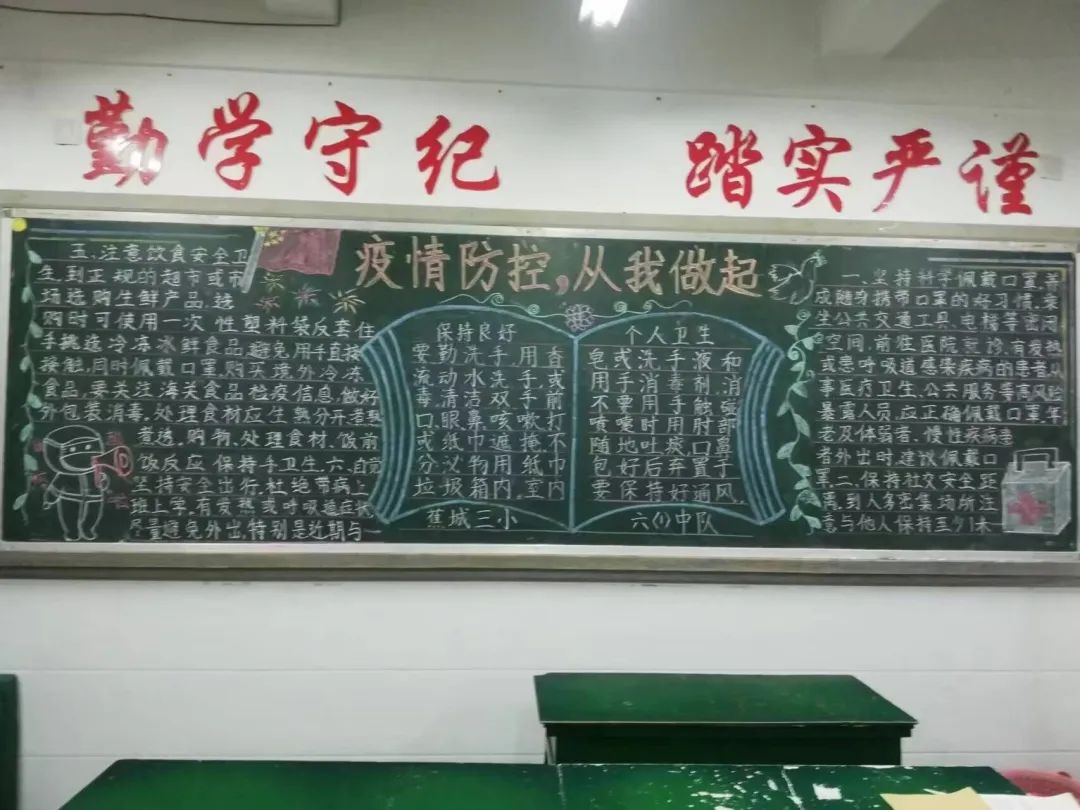 勤学守纪 踏实严谨
疫情防控,从我做起
五、注意饮食安全卫
生,到正规的超市或市
场选购生鲜产品,选
购时可使用一次性塑料袋反套住
手挑选冷冻冰鲜食品,避免用手直接
接触,同时佩戴口罩,购买境外冷冻
食品,要关注海关食品检疫信息,做好
外包装消毒,处理食材应生熟分开煮熟
煮透,购物、处理食材、饭前
饭反应保持手卫生,六、自觉
坚持安全出行,杜绝带病上
班上学,有发热或呼吸道症状
尽量避免外出,特别是近期与一
保持良好
要勤洗手,用香
流动水洗手,或
毒清洁双手,或
口、眼鼻咳嗽打
或纸巾遮掩,不
分泌物用纸巾
垃圾箱内,室内
蕉城三小
个人卫生
皂或洗手液和
用手消毒剂消
不要用手触碰
喷嚏时用肘部
随地吐痰口鼻
包好后弃置于
要保持好通风,
六(1)中队
一、坚持科学佩戴口罩,养
成随身携带口罩的好习惯,乘
坐公共交通工具、电梯等密闭
空间,前往医院就诊,有发热
或患呼吸道感染疾病的患者,从
事医疗卫生、公共服务等高风险
暴露人员,应正确佩戴口罩,年
老及体弱者、慢性疾病患
者外出时建议佩戴口
罩,二、保持社交安全距
离,到人多密集场所注
意与他人保持至少1米